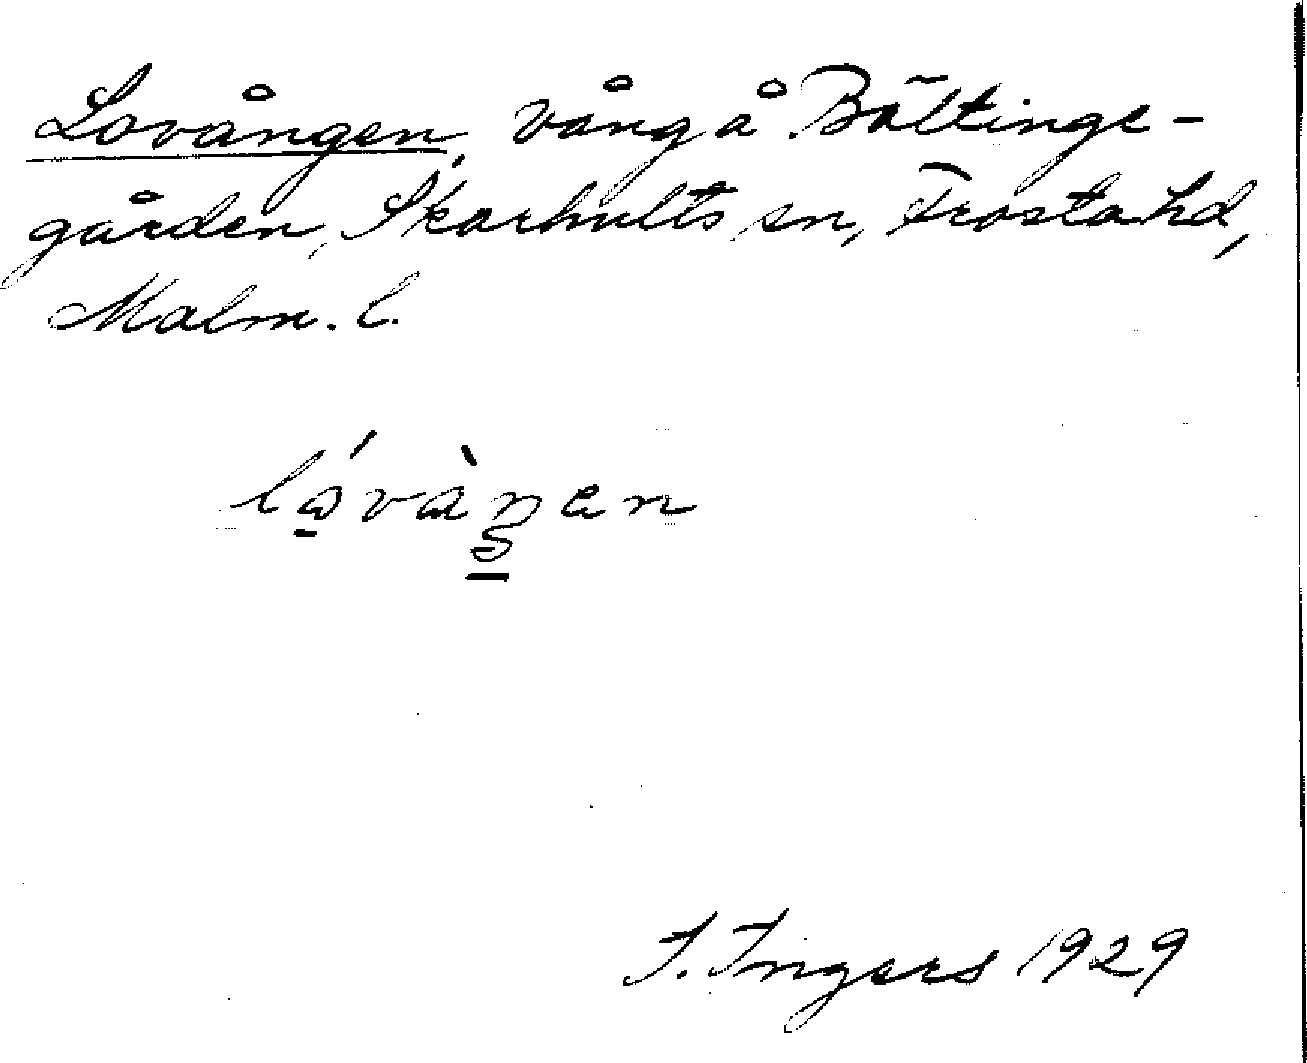 Lovången, vång å Böltinge-
gården, Skarhults sn, Frosta hd,
Malm. l.
lóvàŋen
I. Ingers 1929